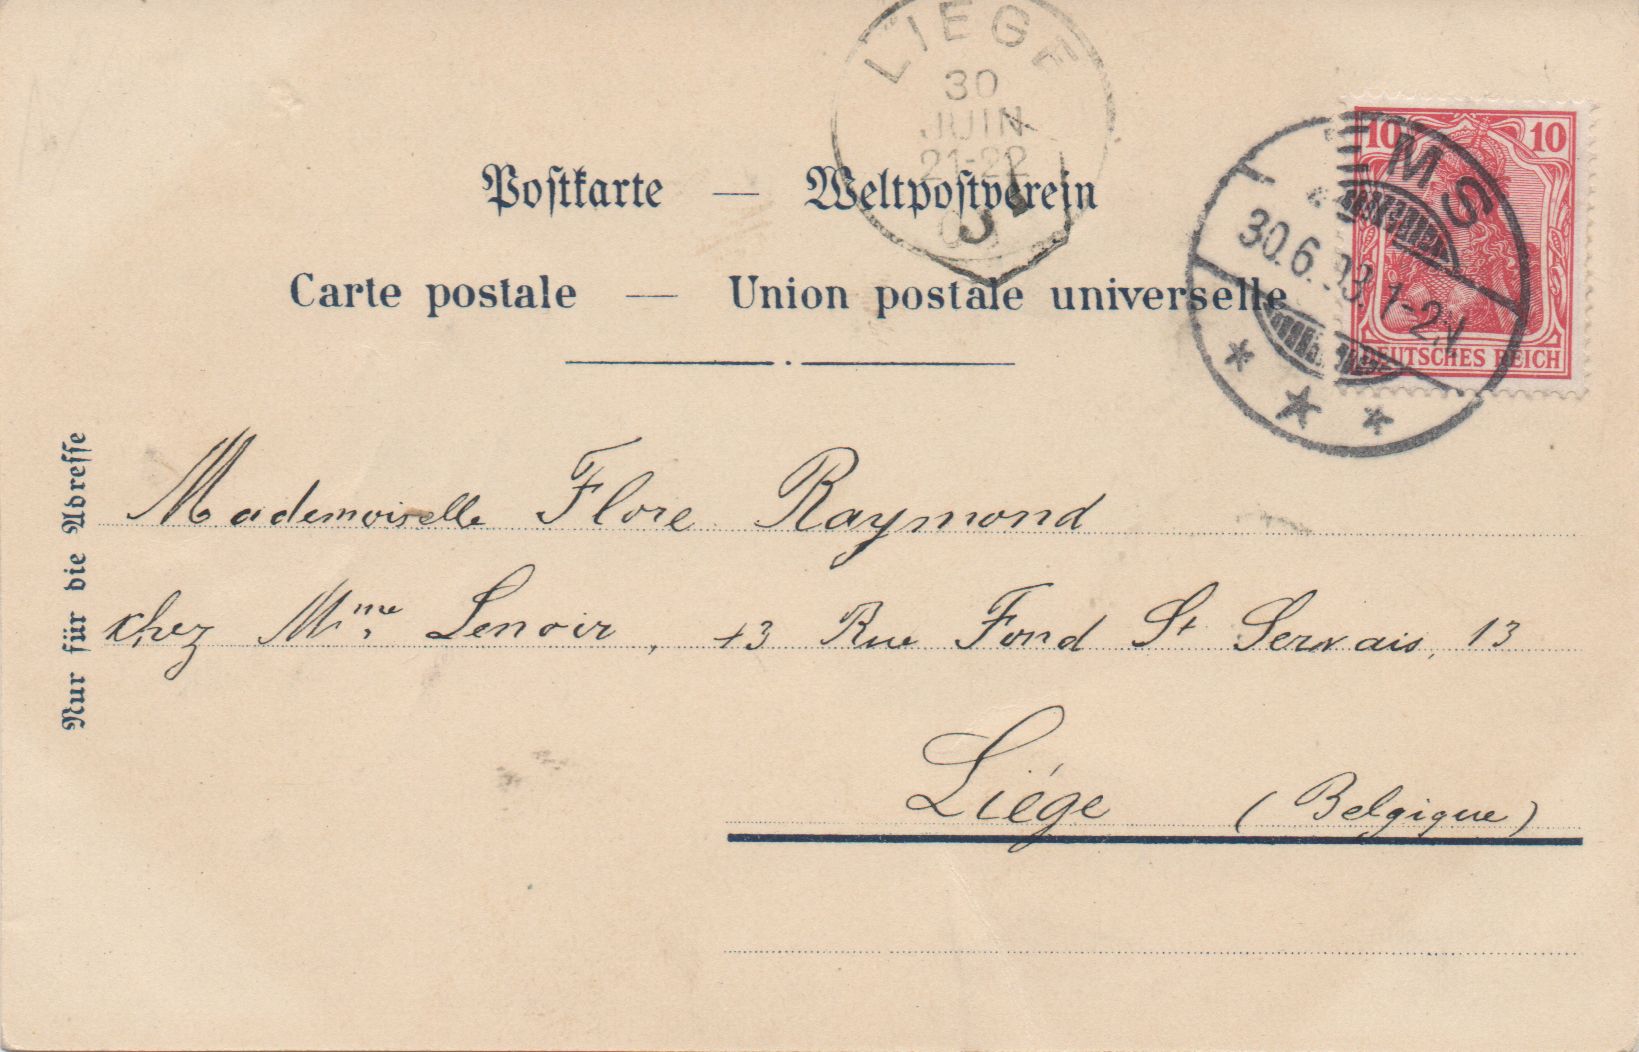 LIEGE
30
JUIN
21-22
Postkarte — Weltpostverein
Carte postale — Union postale universelle
10 10
DEUTSCHES REICH
EMS
30.6. 1-2N
Nur für die Adresse
Mademoiselle Flore Raymond
chez Mme Lenoir, 13 Rue Fond St Servais, 13
Liége (Belgique)